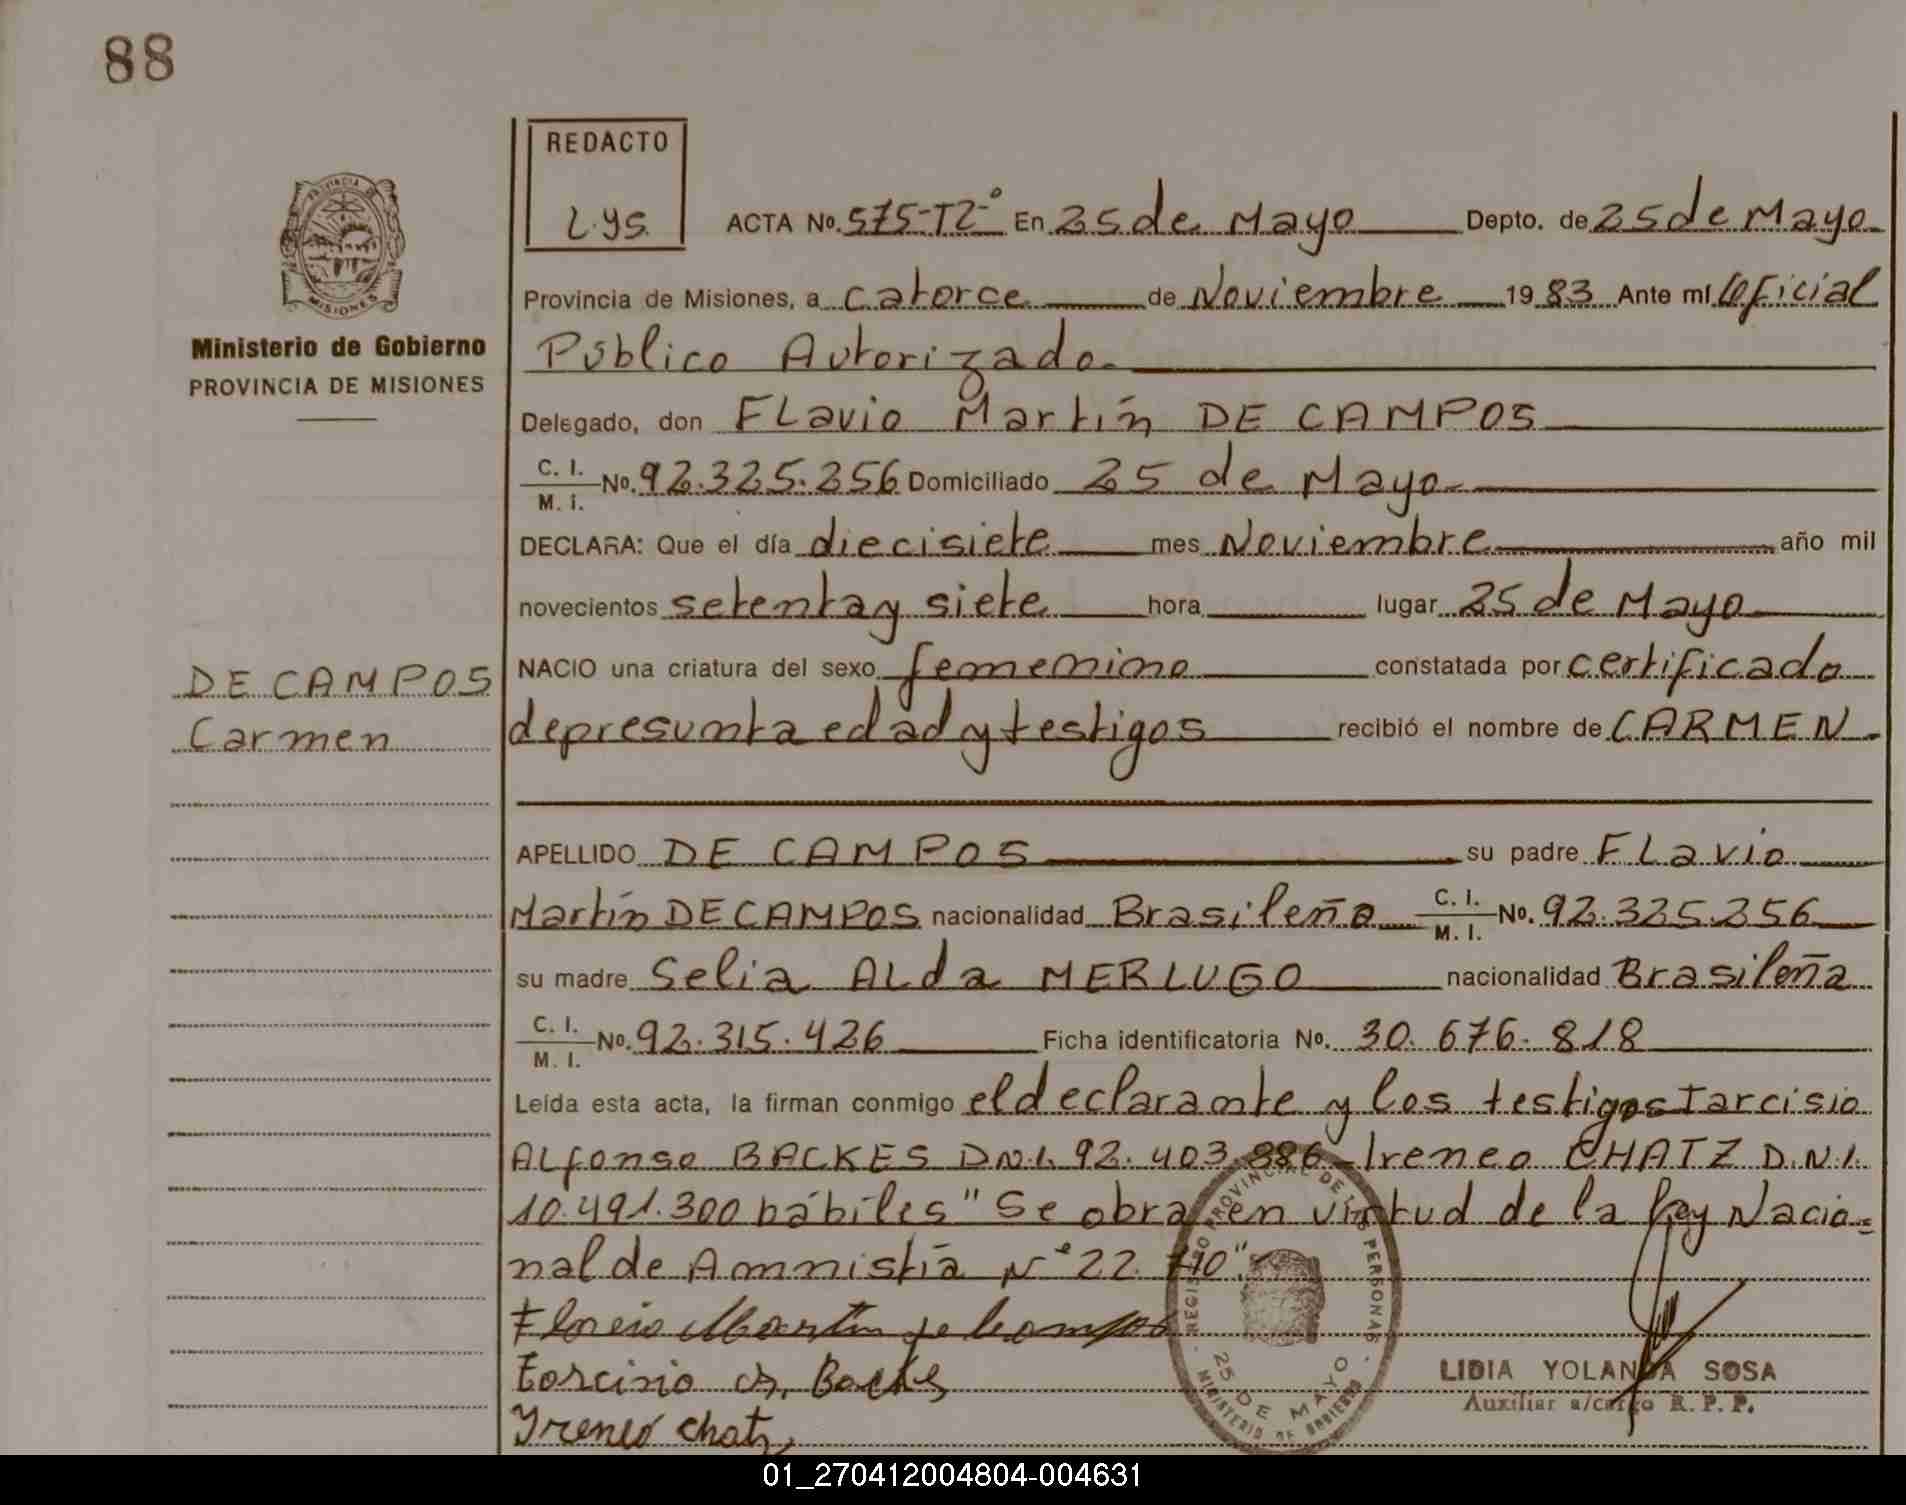 88
REDACTO
L.ys.
ACTA No. 575-T2-° En 25 de Mayo Depto. de 25 de Mayo
Provincia de Misiones, a catorce de Noviembre 19 83 Ante mí Oficial
Público Autorizado.
Delegado, don FLavio Martín DE CAMPOS
C. I.
M. I. No. 92.325.256 Domiciliado 25 de Mayo
DECLARA: Que el día diecisiete mes Noviembre año mil
novecientos setenta y siete hora lugar 25 de Mayo
NACIO una criatura del sexo femenino constatada por certificado
de presunta edad y testigos recibió el nombre de CARMEN.
APELLIDO DE CAMPOS su padre FLavio
Martín DE CAMPOS nacionalidad Brasileña C. I.
M. I. No. 92.325.256
su madre Selia ALda MERLUGO nacionalidad Brasileña
C. I.
M. I. No. 92.315.426 Ficha identificatoria No. 30.676.818
Leída esta acta, la firman conmigo el declarante y los testigos Tarcisio
ALfonso BACKES D.N.I. 92.403.886 - Ireneo CHATZ D.N.I.
10.491.300 hábiles "Se obra en virtud de la Ley Nacio=
nal de Amnistía N° 22.710".
Martin de Campos
Backes
Ireneo Chatz
LIDIA YOLANDA SOSA
Auxiliar a/cargo R. P. P.
REGISTRO PROVINCIAL DE LAS PERSONAS
25 DE MAYO
MINISTERIO DE GOBIERNO
PROVINCIA DE
MISIONES
Ministerio de Gobierno
PROVINCIA DE MISIONES
DE CAMPOS
Carmen
01_270412004804-004631